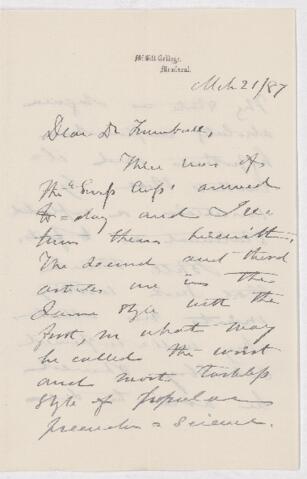 McGill College,
Montreal.
Mch 21/87
Dear Dr Trumbull,
There was of
the arrived
to-day and I re-
turn them herewith.
The second and third
articles are in the
same style with the
first, in what may
be called the worst
and most
style of popular
pseudo-science.